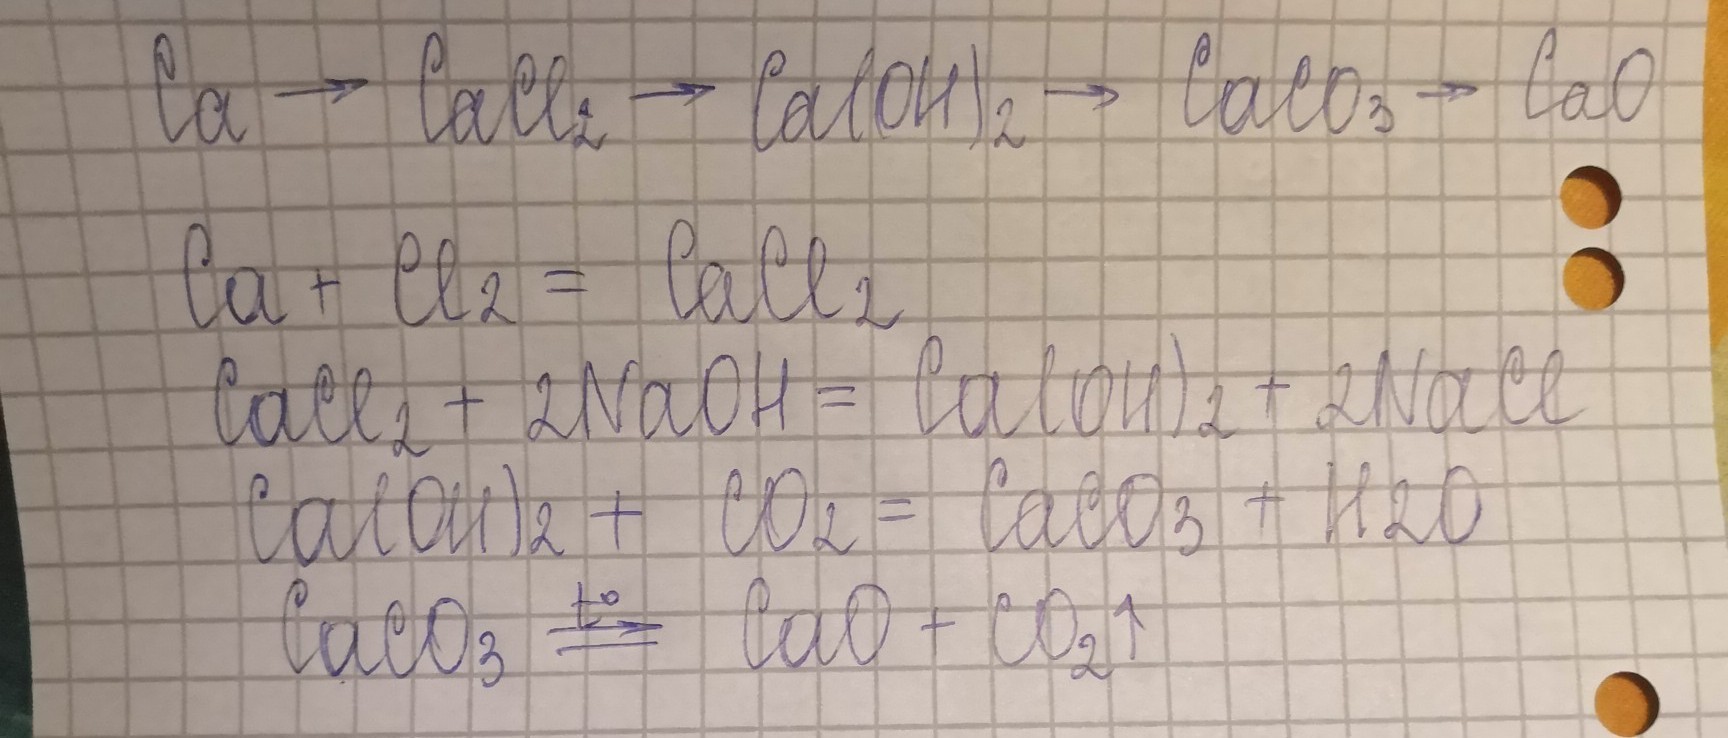 Ca → CaCl₂ → Ca(OH)₂ → CaCO₃ → CaO
Ca + Cl₂ = CaCl₂
CaCl₂ + 2NaOH = Ca(OH)₂ + 2NaCl
Ca(OH)₂ + CO₂ = CaCO₃ + H2O
CaCO₃ =t°=> CaO + CO₂↑